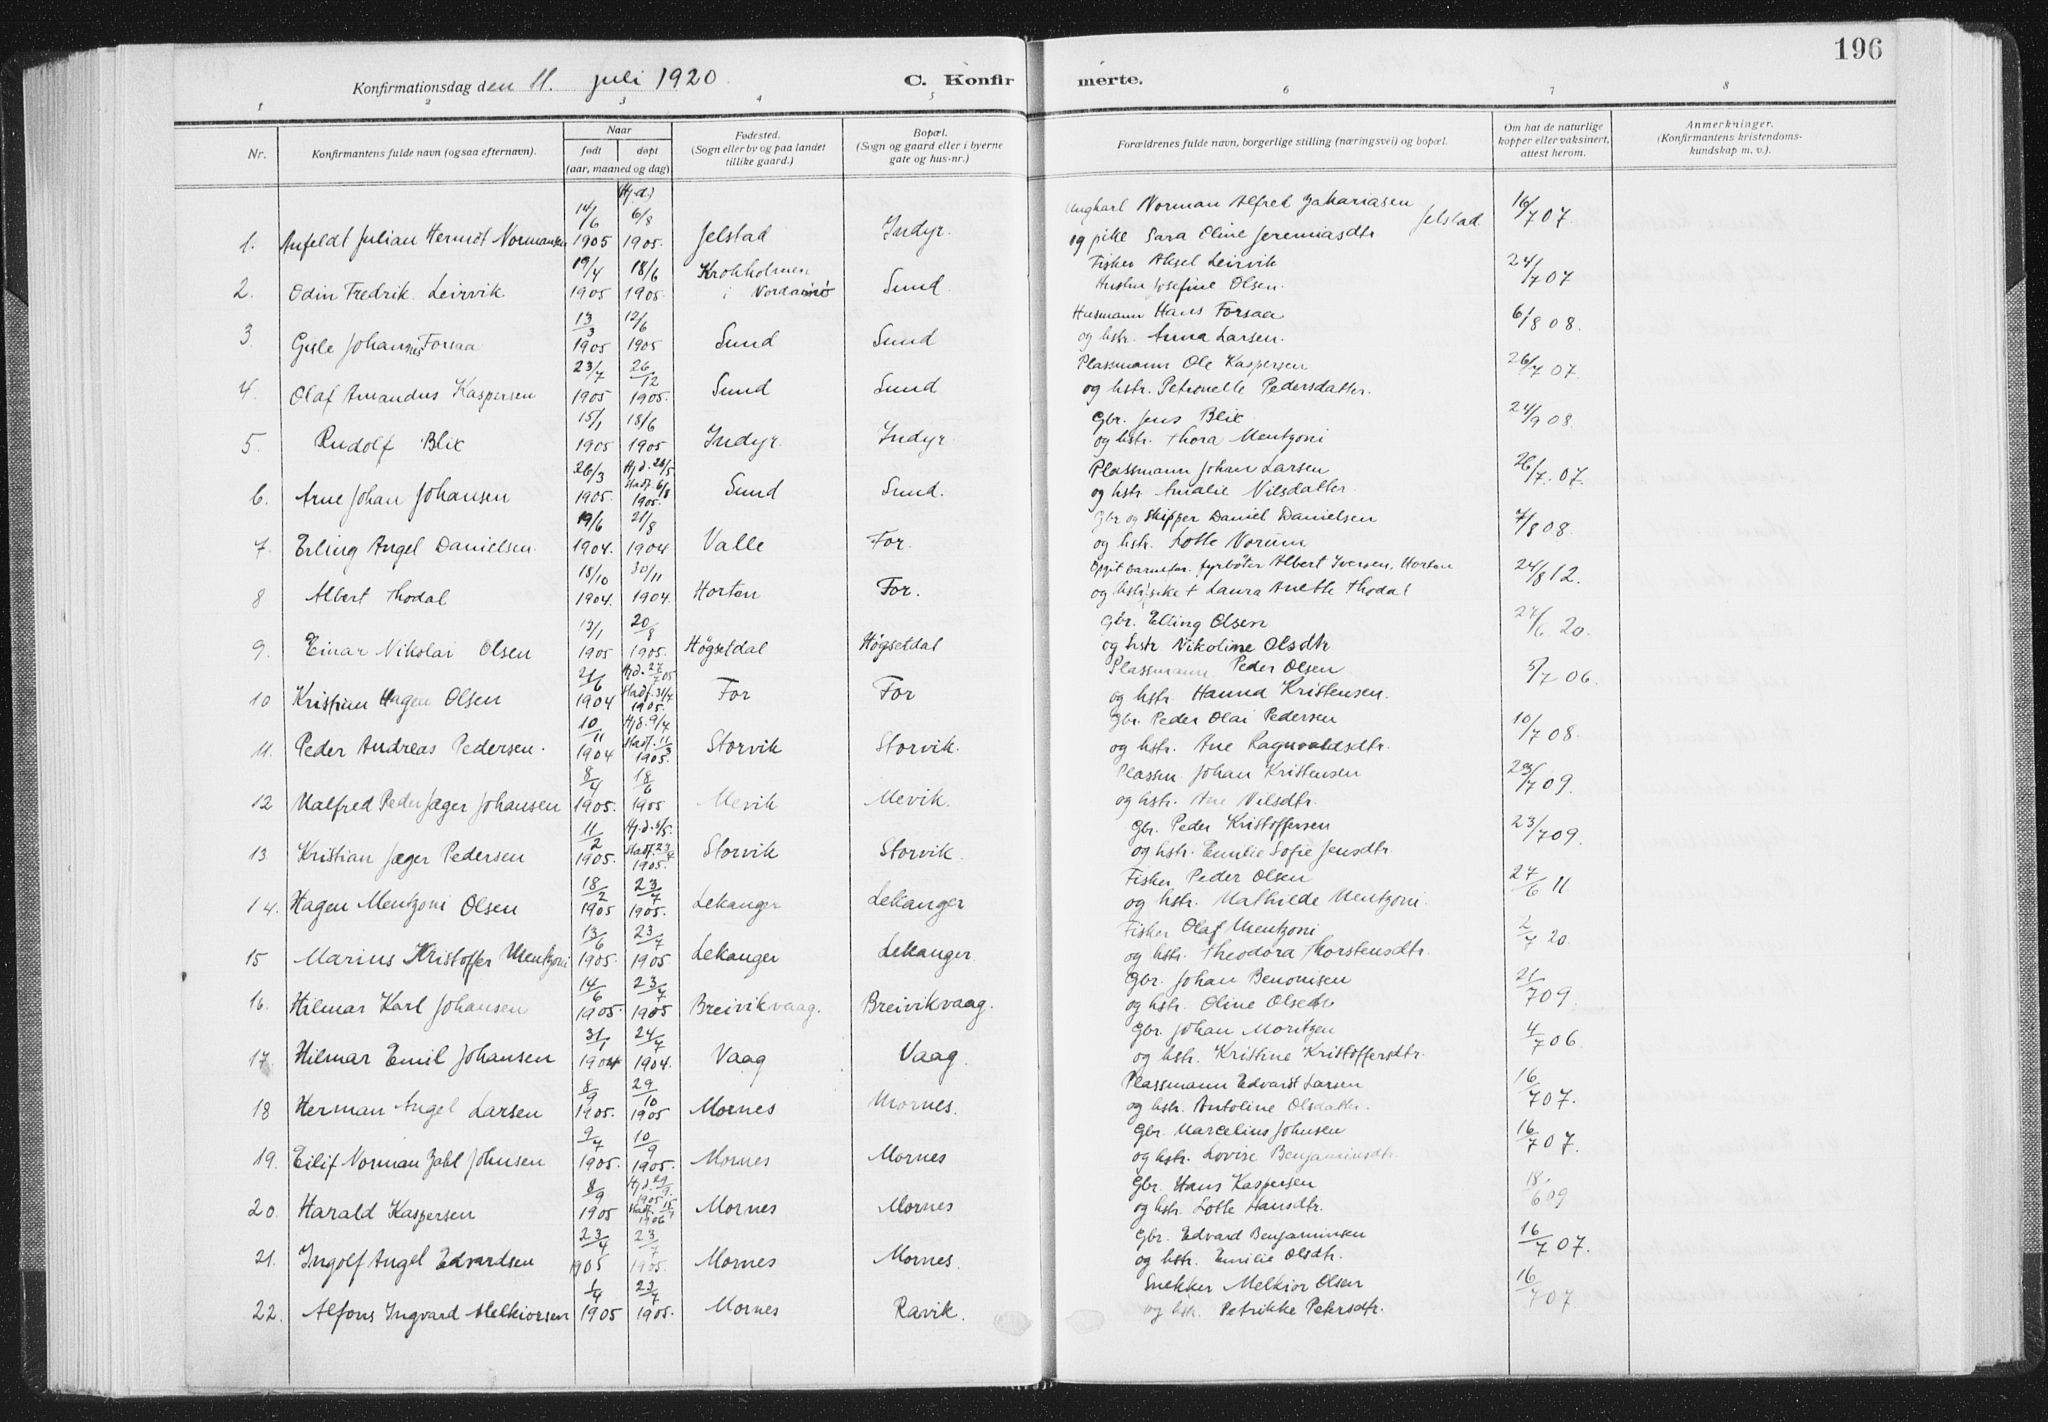 196
Konfirmationsdag den 11. juli 1920. C. Konfirmerte.
1 2 3 4 5 6 7 8
Nr. Konfirmantens fulde navn (ogsaa efternavn). Naar født døpt (aar, maaned og dag) Fødested. (Sogn eller by og paa landet tillike gaard.) Bopæl. (Sogn og gaard eller i byerne gate og hus-nr.) Forældrenes fulde navn, borgerlige stilling (næringsvei) og bopæl. Om hat de naturlige kopper eller vaksinert, attest herom. Anmerkninger. (Konfirmantens kristendomskundskap m. v.).
1. Anfeldt Julian Hermot Normansen 14/6 1905 (Hj.d.) 6/8 1905. Jelstad Indyr. Ungkarl Norman Alfred Zakariasen Jelstad 16/7 07.
og pike Sara Oline Jeremiasdtr
2. Odin Fredrik Leirvik 19/4 1905 18/6 1905. Krokholmen i Sund. Fisker Aksel Leirvik 24/7 07
Hustru Josefine Olsen.
3. Gisle Johannes Forsaa 13/3 1905 12/6 1905 Sund Sund Husmann Hans Forsaa 6/8 08.
og hstr. Anna Larsen.
4. Olaf Amandus Kaspersen 23/7 1905 26/12 1905. Sund Sund Plassmann Ole Kaspersen 26/7 07.
og hstr. Petronelle Pedersdatter.
5. Rudolf Blix 15/1 1905 18/6 1905. Indyr. Indyr. Gbr. Jens Blix 24/9 08.
og hstr. Thora Mentzoni
6. Arne Johan Johansen 26/3 1905. Hj.d. 28/5 Stadf. 6/8 1905. Sund Sund. Plassmann Johan Larsen 26/7. 07.
og hstr. Amalie Nilsdatter.
7. Erling Angel Danielsen. 19/6 1904. 21/8 1904 Valle For. Gbr og Skipper Daniel Danielsen 7/8 08.
og hstr. Lotte Norum
8 Albert Thodal 18/10 1904. 30/11 1904. Horten For. Opgit barnefar. fyrbøter Albert Iversen, Horten 24/8 12.
og pike Laura Anette Thodal
9. Einar Nikolai Olsen 13/1 1905 20/8 1905. Högsetdal Högsetdal Gbr. Elling Olsen 27/6 20.
og hstr Nikoline Olsdtr
10 Kristian Hagen Olsen 21/6 1904 Hj.d. 27/7 05 Stadf. 31/7 1905. For For Plassmann Peder Olsen 5/7 06.
og hstr. Hanna Kristensen.
11. Peder Andreas Pedersen. 10/11 1904 Hj.d. 9/4 Stadf. 11/3 1905. Storvik Storvik. Gbr. Peder Olai Pedersen 10/7 08.
og hstr. Ane Ragnvaldsdtr.
12 Malfred Peder Jæger Johansen 8/4 1905. 18/6 1905 Mevik Mevik. Plassm. Johan Kristensen 23/7 09.
og hstr. Ane Nilsdtr.
13. Kristian Jæger Pedersen 11/2 1905. Hj.d. 8/5. Stadf. 23/4 1905. Storvik Storvik. Gbr. Peder Kristoffersen 23/7 09.
og hstr. Emilie Sofie Jensdtr.
14. Hagen Mentzoni Olsen 18/2 1905 23/7 1905. Lekanger Lekanger Fisker Peder Olsen 27/6 11
og hstr. Mathilde Mentzoni.
15 Marius Kristoffer Mentzoni 13/6 1905 23/7 1905. Lekanger Lekanger. Fisker Olaf Mentzoni 2/7 20.
og hstr. Theodora Thorstensdtr.
16. Hilmar Karl Johansen 14/6 1905. 23/7 1905 Breivikvaag. Breivikvaag. Gbr. Johan Benonisen 21/7 09.
og hstr. Oline Olsedtr
17. Hilmar Emil Johansen 31/1 1904 24/7 1904. Vaag Vaag. Gbr. Johan Moritzen 4/7 06
og hstr. Kristine Kristoffersdtr.
18 Herman Angel Larsen 8/9 1905. 29/10 1905 Mornes Mornes. Plassmann Edvardt Larsen 16/7 07.
og hstr. Antoline Olsdattr.
19. Eilif Norman Zahl Johnsen 9/7 1905. 10/9 1905. Mornes Mornes Gbr. Marcelius Johnsen 16/7 07.
og hstr. Lovise Benjaminsdtr.
20. Harald Kaspersen 8/9 1905 Hj.d. 29/9 1905 Stadf. 15/7 1906 Mornes Mornes Gbr. Hans Kaspersen 18/6 09
og hstr. Lotte Hansdtr.
21. Ingolf Angel Edvardsen 23/4 1905 23/7 1905. Mornes Mornes. Gbr. Edvard Benjaminsen 16/7 07.
og hstr. Emilie Olsdtr.
22. Alfons Ingvard Melkiorsen 1/4 1905 23/7 1905. Mornes Ravik. Snekker Melkior Olsen 16/7 07
og hstr. Petrikke Petersdtr.